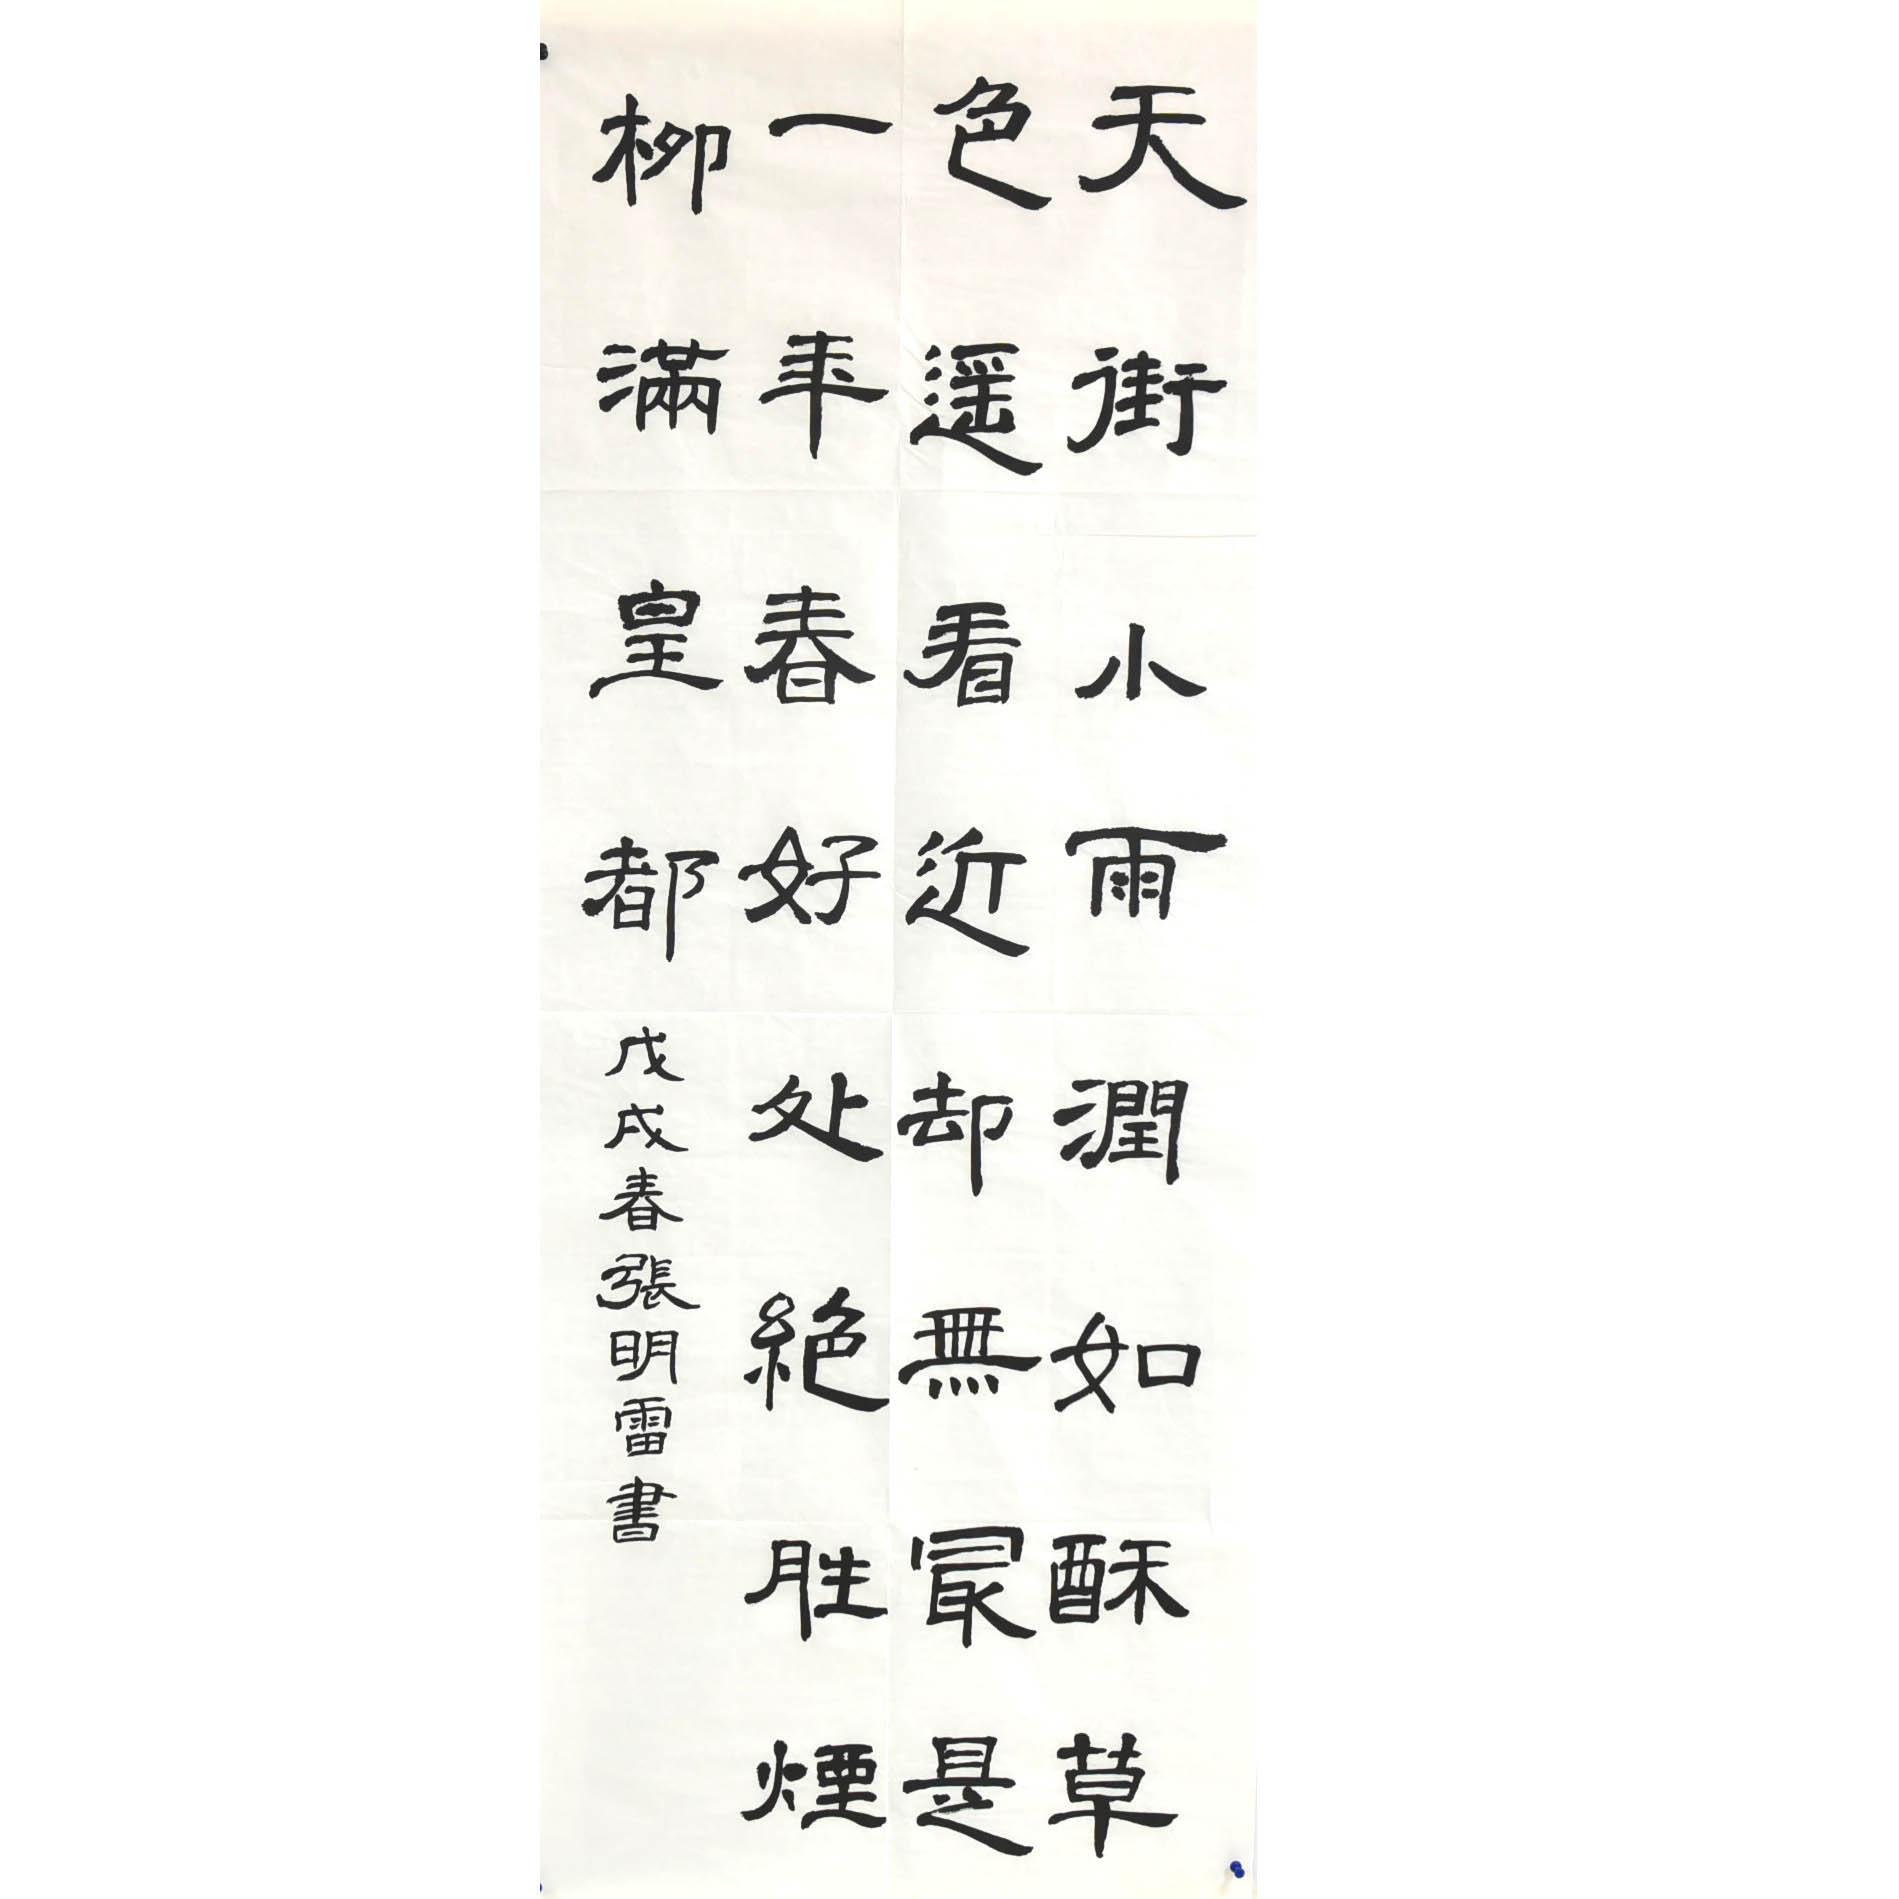 天街小雨潤如酥草
色遥看近却無冣是
一年春好处絶胜煙
柳滿皇都
戊戌春張明雷書